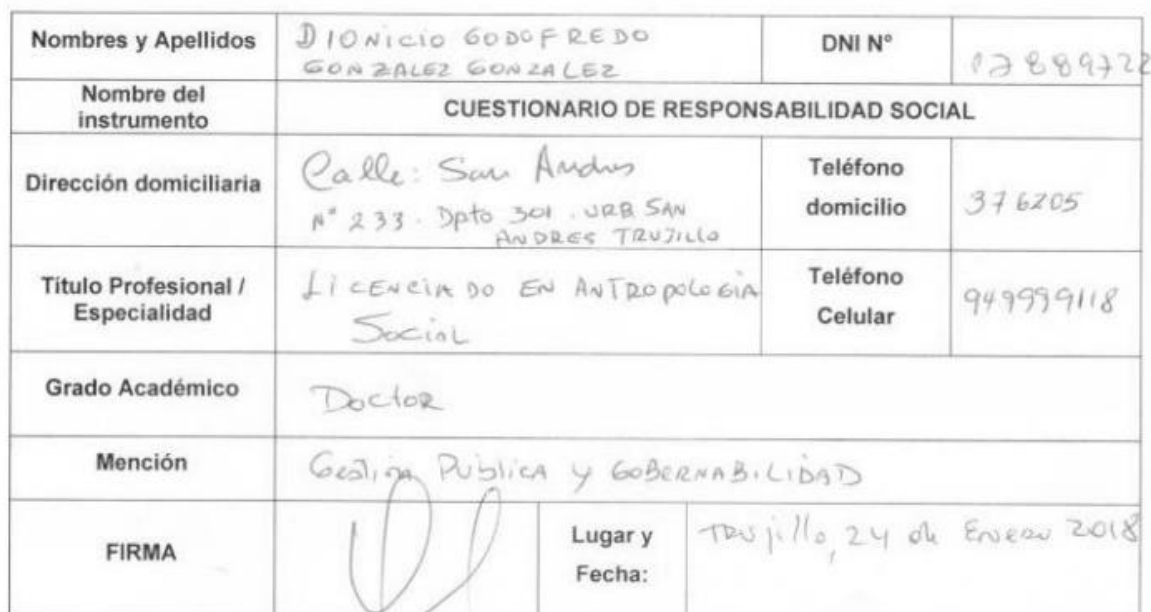 Nombres y Apellidos
DIONICIO GODOFREDO
GONZALEZ GONZALEZ
DNI N°
17889722
Nombre del
instrumento
CUESTIONARIO DE RESPONSABILIDAD SOCIAL
Dirección domiciliaria
Calle: San Andres
N° 233. Dpto 301. URB SAN
ANDRES TRUJILLO
Teléfono
domicilio
376205
Título Profesional /
Especialidad
LICENCIADO EN ANTROPOLOGIA
Social
Teléfono
Celular
949999118
Grado Académico
Doctor
Mención
Gestion Publica y GOBERNABILIDAD
FIRMA
Lugar y
Fecha:
Trujillo, 24 de Enero 2018